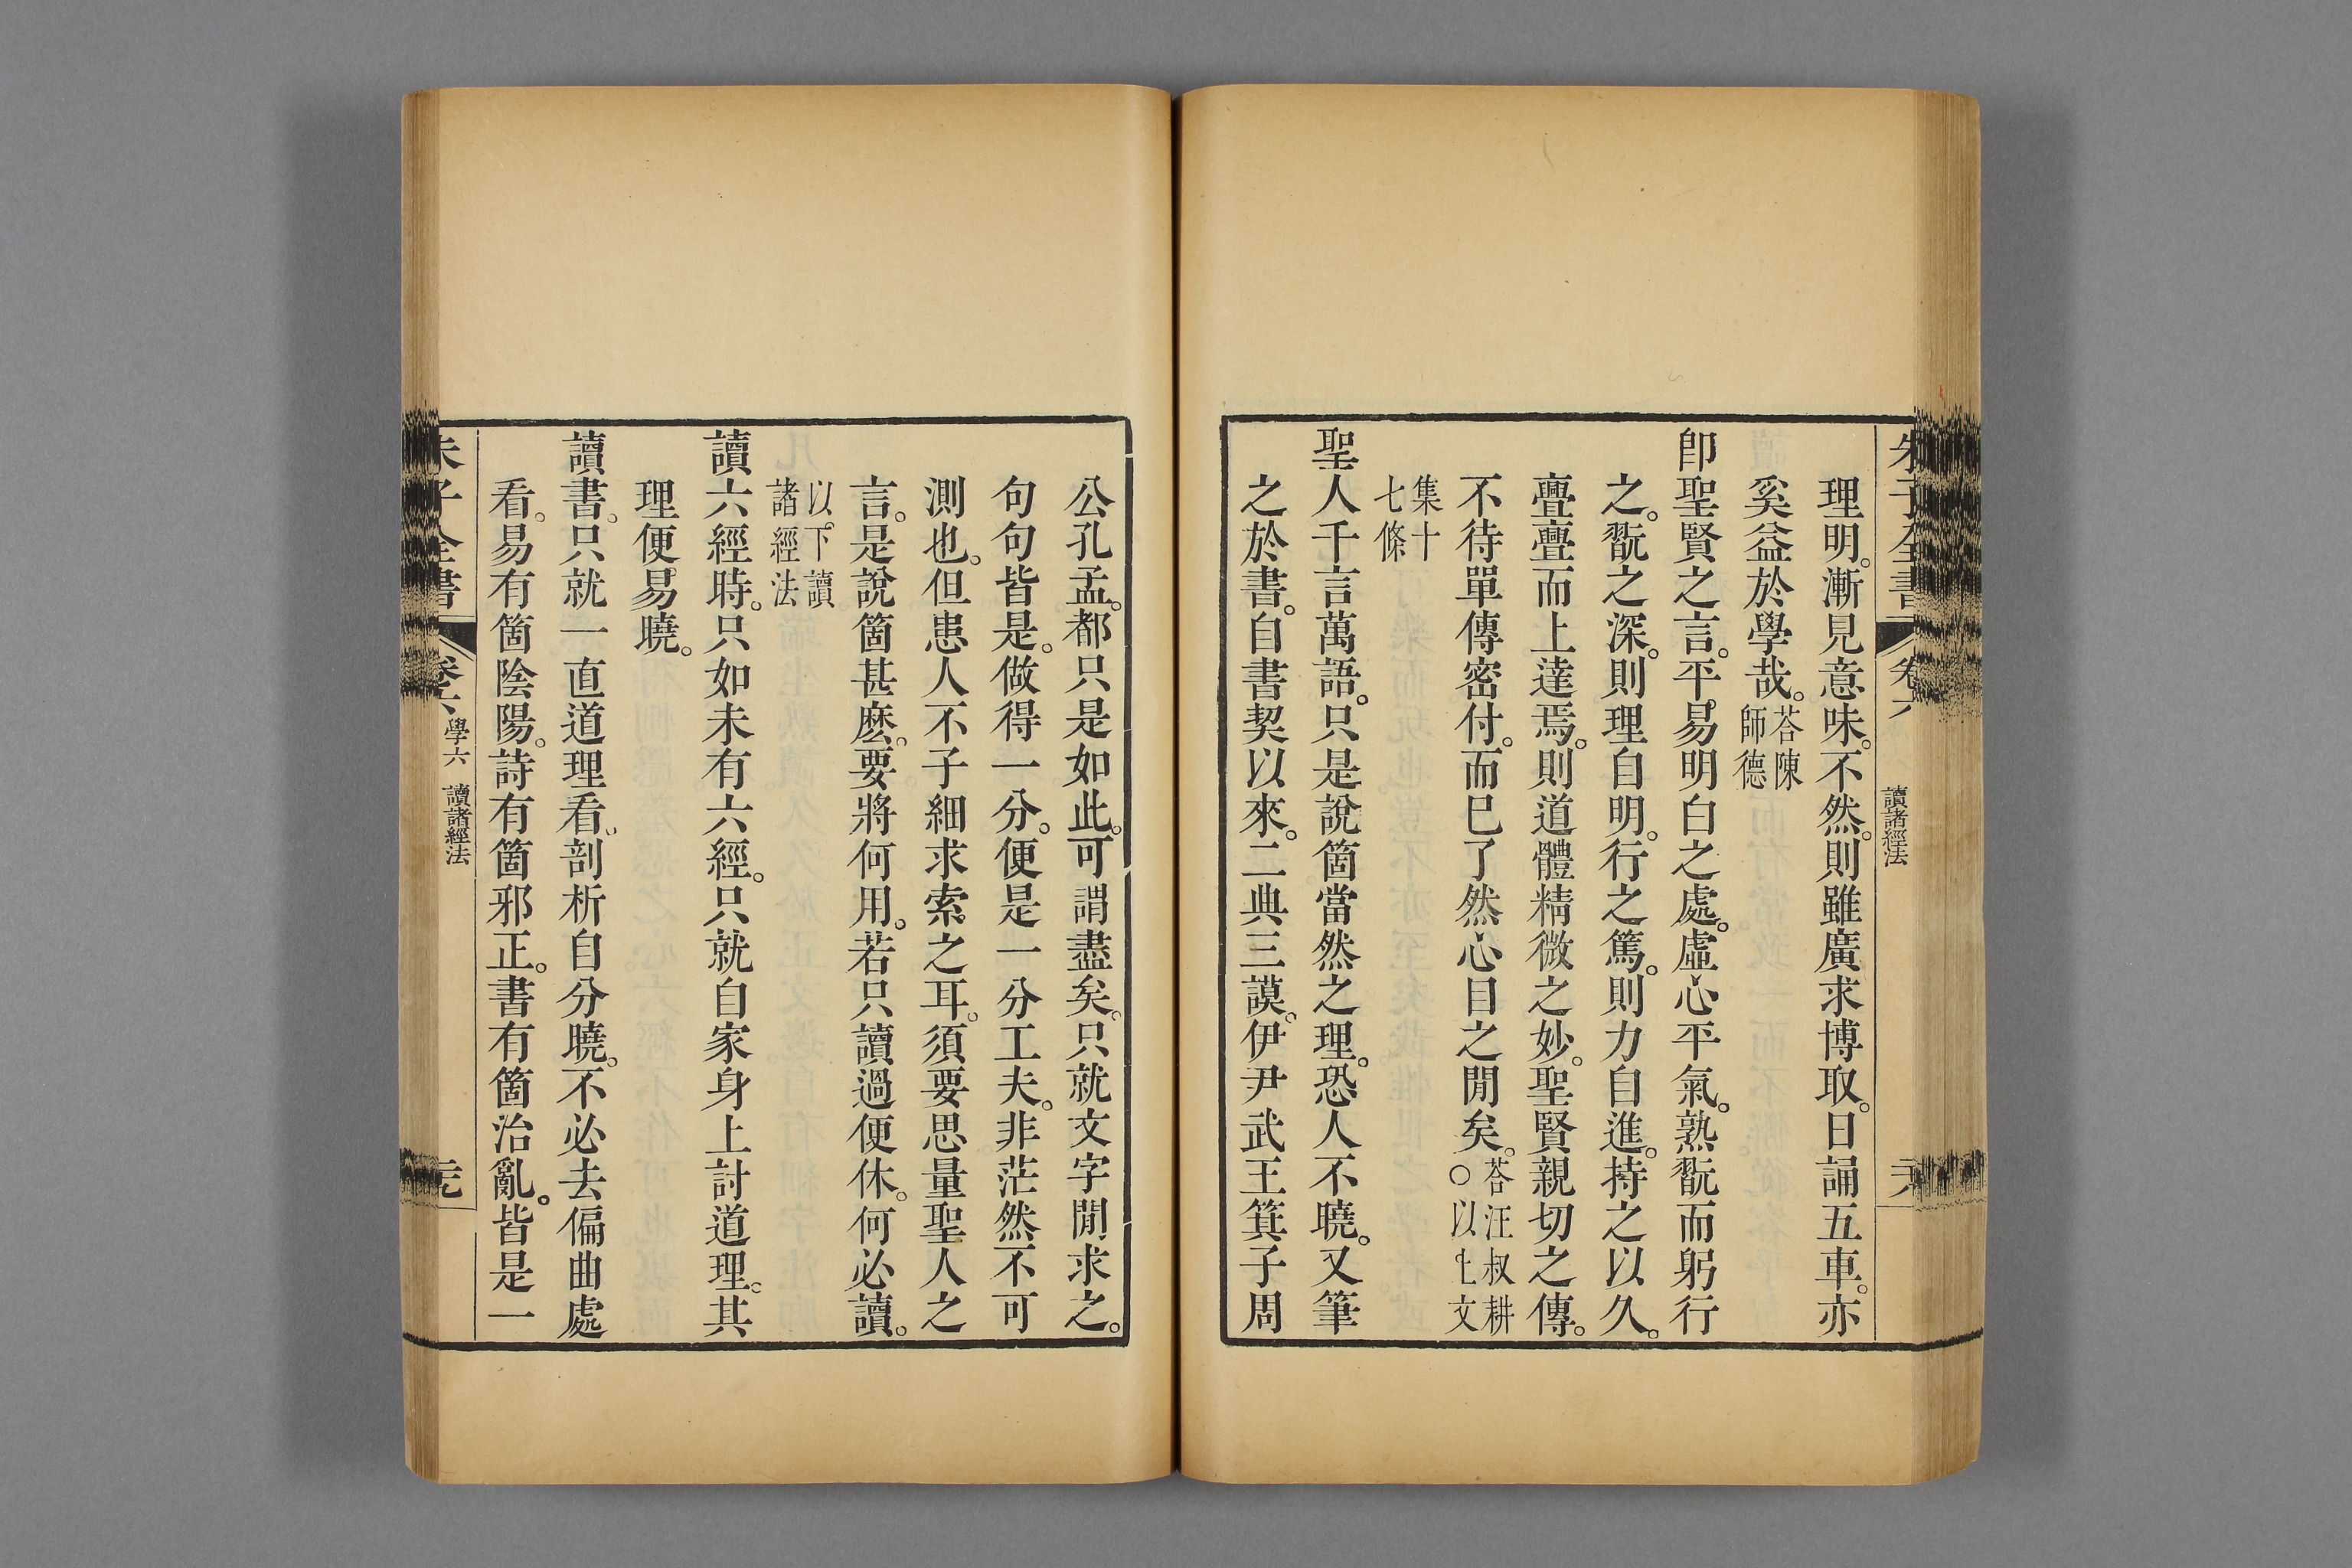 朱子全書 卷六 讀諸經法
理明。漸見意味。不然。則雖廣求博取。日誦五車。亦
奚益於學哉。荅陳師德
卽聖賢之言。平易明白之處。虛心平氣。熟翫而躬行
之。翫之深。則理自明。行之篤。則力自進。持之以久。
亹亹而上達焉。則道體精微之妙。聖賢親切之傳。
不待單傳密付。而巳了然心目之閒矣。荅汪叔耕○以上文
集十七條
聖人千言萬語。只是說箇當然之理。恐人不曉。又筆
之於書。自書契以來。二典三謨。伊尹武王箕子周
公孔孟。都只是如此。可謂盡矣。只就文字閒求之。
句句皆是。做得一分。便是一分工夫。非茫然不可
測也。但患人不子細求索之耳。須要思量聖人之
言。是說箇甚麽。要將何用。若只讀過便休。何必讀。
以下讀諸經法
讀六經時。只如未有六經。只就自家身上討道理。其
理便易曉。
讀書。只就一直道理看。剖析自分曉。不必去偏曲處
看。易有箇陰陽。詩有箇邪正。書有箇治亂。皆是一
朱子全書 卷六 學六 讀諸經法